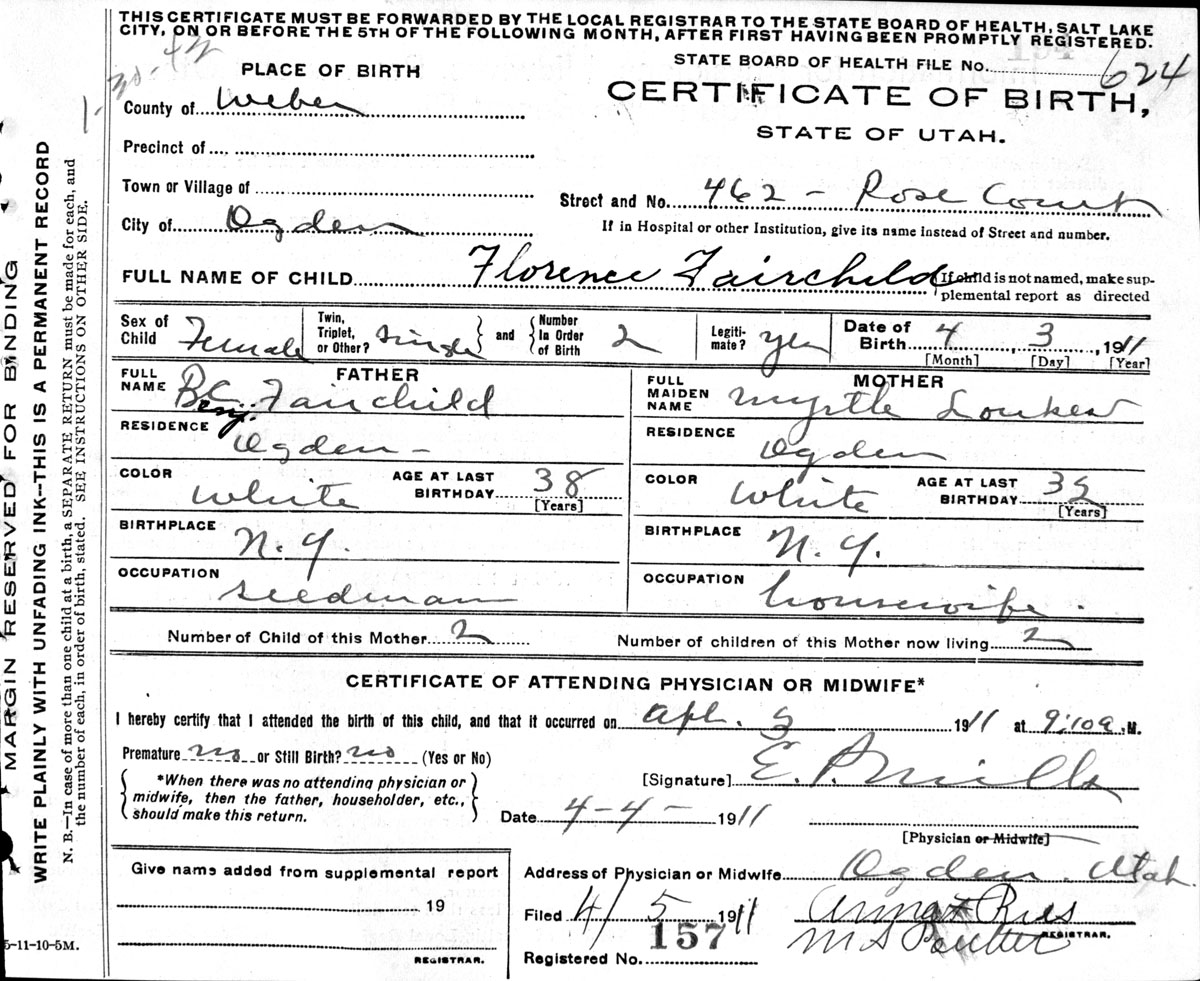 THIS CERTIFICATE MUST BE FORWARDED BY THE LOCAL REGISTRAR TO THE STATE BOARD OF HEALTH, SALT LAKE
CITY, ON OR BEFORE THE 5TH OF THE FOLLOWING MONTH, AFTER FIRST HAVING BEEN PROMPTLY REGISTERED.
STATE BOARD OF HEALTH FILE No. 624
PLACE OF BIRTH
CERTIFICATE OF BIRTH,
STATE OF UTAH.
County of Weber
Precinct of
Town or Village of
Street and No. 462 - Rose Court
City of Ogden
If in Hospital or other Institution, give its name instead of Street and number.
FULL NAME OF CHILD Florence Fairchild
If child is not named, make sup-
plemental report as directed
Sex of Child Female
Twin, Triplet, or Other? Single and Number In Order of Birth 2
Legiti-mate? yes
Date of Birth 4 3, 1911
[Month] [Day] [Year]
FATHER
FULL NAME B.C. Fairchild
Benj.
RESIDENCE Ogden -
COLOR White
AGE AT LAST BIRTHDAY 38
[Years]
BIRTHPLACE N. Y.
OCCUPATION seedman
MOTHER
FULL MAIDEN NAME Myrtle
RESIDENCE Ogden
COLOR White
AGE AT LAST BIRTHDAY
[Years]
BIRTHPLACE N. Y.
OCCUPATION housewife.
Number of Child of this Mother 2
Number of children of this Mother now living 2
CERTIFICATE OF ATTENDING PHYSICIAN OR MIDWIFE*
I hereby certify that I attended the birth of this child, and that it occurred on Apl. 3 1911 at 9:10 a. M.
Premature no or Still Birth? no (Yes or No)
*When there was no attending physician or
midwife, then the father, householder, etc.,
should make this return.
[Signature] E. P. Mills
Date 4-4- 1911
[Physician or Midwife]
Give name added from supplemental report
19
REGISTRAR.
Address of Physician or Midwife Ogden. Utah.
Filed 4/5 1911
REGISTRAR.
Registered No. 157
5-11-10-5M.
MARGIN RESERVED FOR BINDING
WRITE PLAINLY WITH UNFADING INK--THIS IS A PERMANENT RECORD
N. B.—In case of more than one child at a birth, a SEPARATE RETURN must be made for each, and
the number of each, in order of birth, stated. SEE INSTRUCTIONS ON OTHER SIDE.